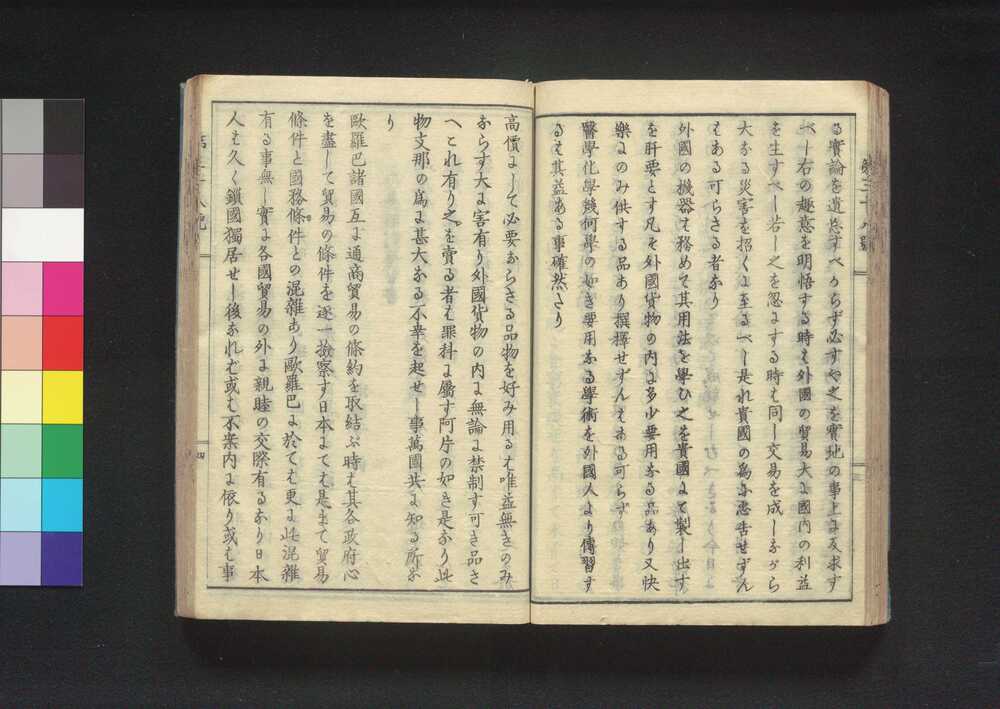 る實論を遺忘すべからず必すや之を實地の事上に反求す
べし右の趣意を明悟する時は外國の貿易大に國内の利益
を生すべし若し之を忽にする時は同し交易を成しながら
大なる災害を招くに至るべし是れ貴國の爲に悉告せずん
はある可らさる者なり
外國の機器は務めて其用法を學ひ之を貴國にて製し出す
を肝要とす凡そ外國貨物の内に多少要用なる品あり又快
樂にのみ供する品あり撰擇せずんはある可らす
醫學化學幾何學の如き要用なる學術を外國人より傳習す
るは其益ある事確然たり
高價にして必要ならさる品物を好み用るは唯益無きのみ
ならす大に害有り外國貨物の内に無論に禁制す可き品さ
へこれ有り之を賣る者は罪科に屬す阿片の如き是なり此
物支那の爲に甚大なる不幸を起せし事萬國共に知る所な
り
歐羅巴諸國互に通商貿易の條約を取結ぶ時は其各政府心
を盡して貿易の條件を逐一撿察す日本にては是まて貿易
條件と國務條件との混雜あり歐羅巴に於ては更に此混雜
有る事無し實に各國貿易の外に親睦の交際有るなり日本
人は久く鎖國獨居せし後なれば或は不案内に依り或は事
四